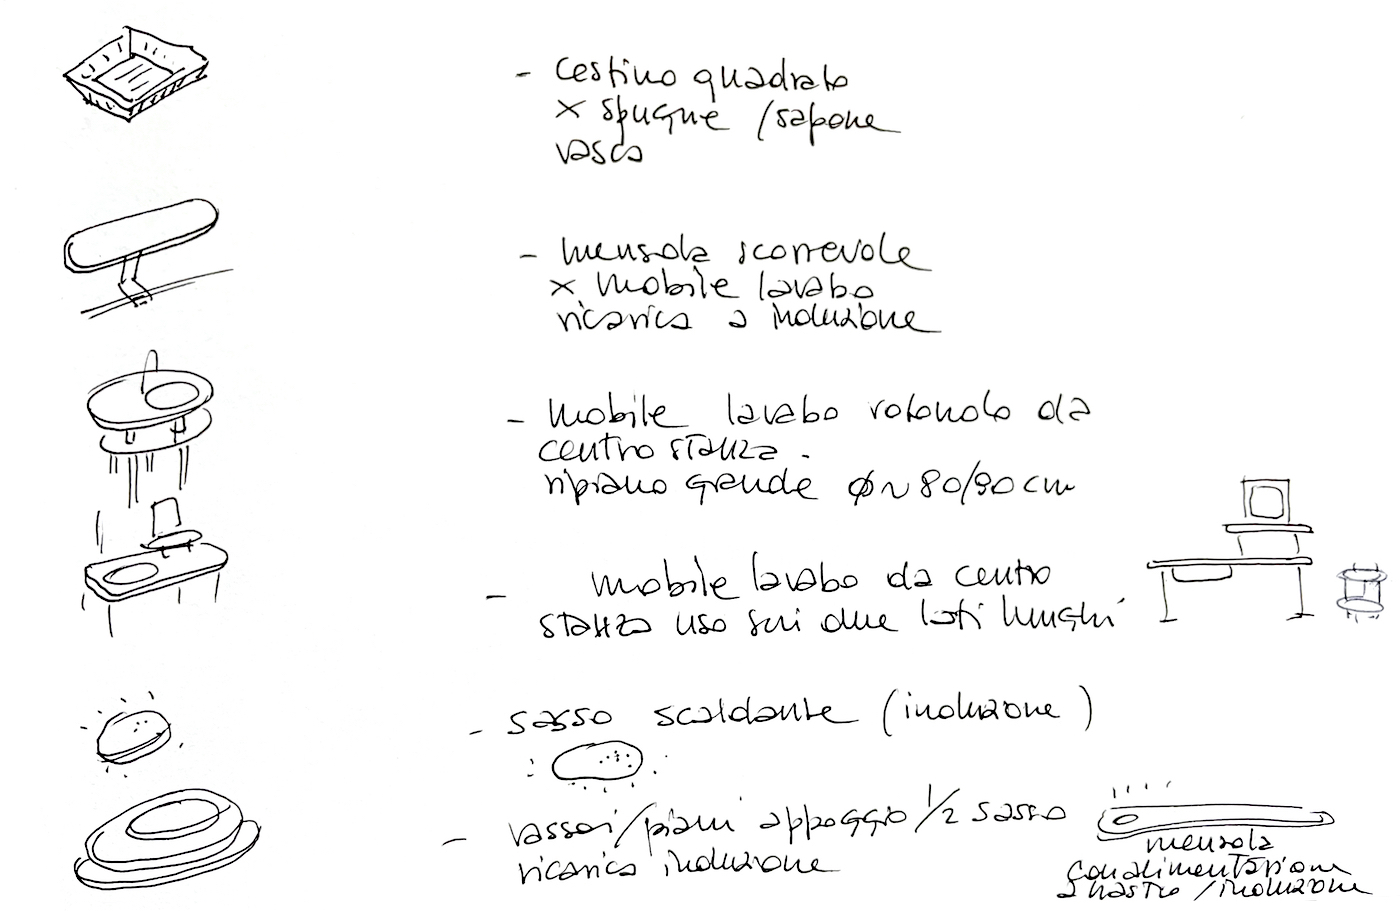 - cestino quadrato
x spugne / sapone
vasca
- mensola scorrevole
x mobile lavabo
ricarica a induzione
- mobile lavabo rotondo da
centro stanza.
ripiano grande ø ~ 80/90 cm
- mobile lavabo da centro
stanza uso sui due lati lunghi
- sasso scaldante (induzione)
- vassoi/piani appoggio 1/2 sasso
ricarica induzione
mensola
con alimentazione
a nastro / induzione